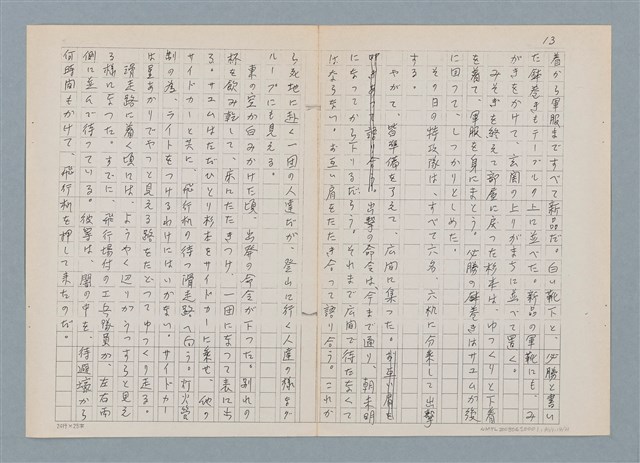 13
着から軍服まで、すべて新品だ。白い靴下と、必勝と書い
た鉢巻きもテーブルの上に並べた。新品の軍靴にも、み
がきをかけて、玄関の上りがまちに並べて置く。
みそぎを終えて部屋に戻った杉本は、ゆっくりと下着
を着て、軍服を身にまとう。必勝の鉢巻きはサユムが後
に回って、しっかりとしめた。
その日の特攻隊は、すべて六名、六机に分乗して出撃
する。
やがて、皆準備を了えて、広間に集った。
出撃の命令は、今まで通り、朝未明
になってから下りるだろう。それまで広間で待たなくて
はならない。お互い肩をたたき合って語り合う。これか
ら戦地に赴く一団の人達だが、登山に行く人達の様なグ
ループにも見える。
東の空が白みかけた頃、出発の命令が下った。別れの
杯を飲み乾して、床にたたきつけ、一団になって表に出
る。サユムはただひとり杉本をサイドカーに乗せ、他の
サイドカーと共に、飛行机の待つ滑走路へ向う。灯火管
制の為、ライトをつけるわけにはいかない。サイドカー
は星あかりでやっと見える路をたどってゆっくり走る。
滑走路に着く頃には、ようやく辺りがうっすらと見え
る様になった。すでに、飛行場付の工兵隊員が、左右両
側に並んで待っている。彼等は、闇の中を、待避壕から
何時間もかけて、飛行机を押して来たのだ。
20字×25